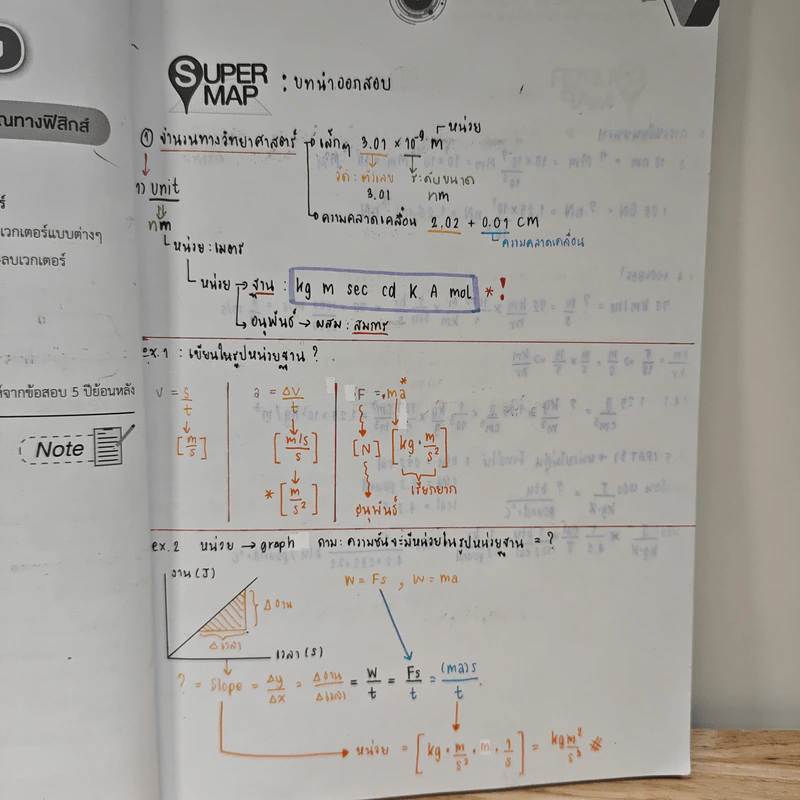 ณทางฟิสิกส์
ร์
เวกเตอร์แบบต่างๆ
ลบเวกเตอร์
ห์จากข้อสอบ 5 ปีย้อนหลัง
Note
SUPER MAP : บทนำออกสอบ
① จำนวนทางวิทยาศาสตร์ → เล็กๆ 3.01 × 10⁻⁹ m → หน่วย
วัด : ตัวเลข ระดับขนาด
3.01 nm
→ ความคลาดเคลื่อน 2.02 + 0.01 cm
ความคลาดเคลื่อน
1) unit
nm
หน่วย : เมตร
หน่วย → ฐาน : kg m sec cd K A mol * !
→ อนุพันธ์ → ผสม : สมการ
ex.1 : เขียนในรูปหน่วยฐาน ?
v = s/t
[m/s]
a = Δv/t
[m/s/s]
* [m/s²]
F = ma *
[N] [kg · m/s²]
เรียกยาก
อนุพันธ์
ex.2 หน่วย → graph ถาม : ความชันจะมีหน่วยในรูปหน่วยฐาน = ?
งาน (J)
Δงาน
Δเวลา
เวลา (s)
W = Fs , W = ma
? = slope = Δy/Δx = Δงาน/Δเวลา = W/t = Fs/t = (ma)s/t
หน่วย = [kg · m/s² · m · 1/s] = kg m²/s³ *